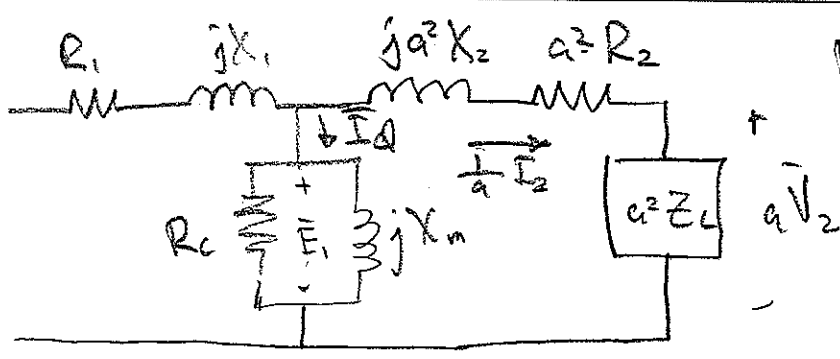 R₁ jX₁ ja²X₂ a²R₂
I̅Q
1/a I̅₂
+
R_c + E̅₁ - jX_m a²Z_L aV̅₂
-